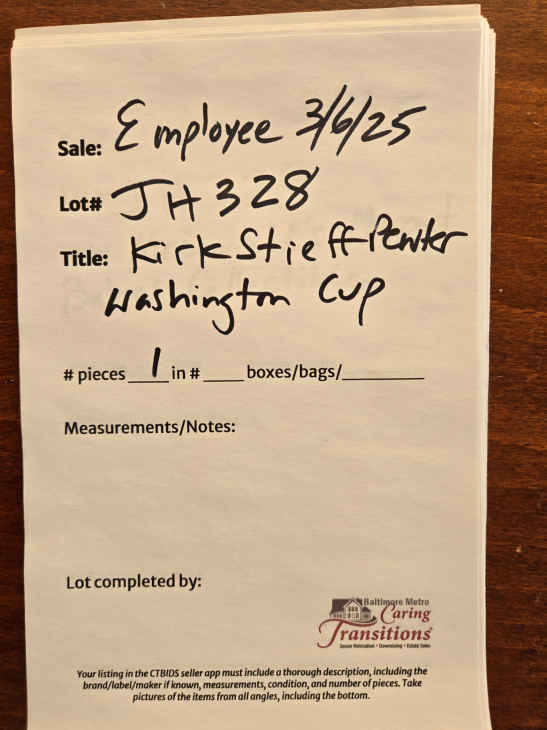 Sale: Employee 3/6/25
Lot# JH328
Title: Kirk Stieff Pewter
Washington Cup
# pieces 1 in # ____ boxes/bags/__________
Measurements/Notes:
Lot completed by:
Baltimore Metro
Caring
Transitions
Senior Relocation • Downsizing • Estate Sales
Your listing in the CTBIDS seller app must include a thorough description, including the
brand/label/maker if known, measurements, condition, and number of pieces. Take
pictures of the items from all angles, including the bottom.